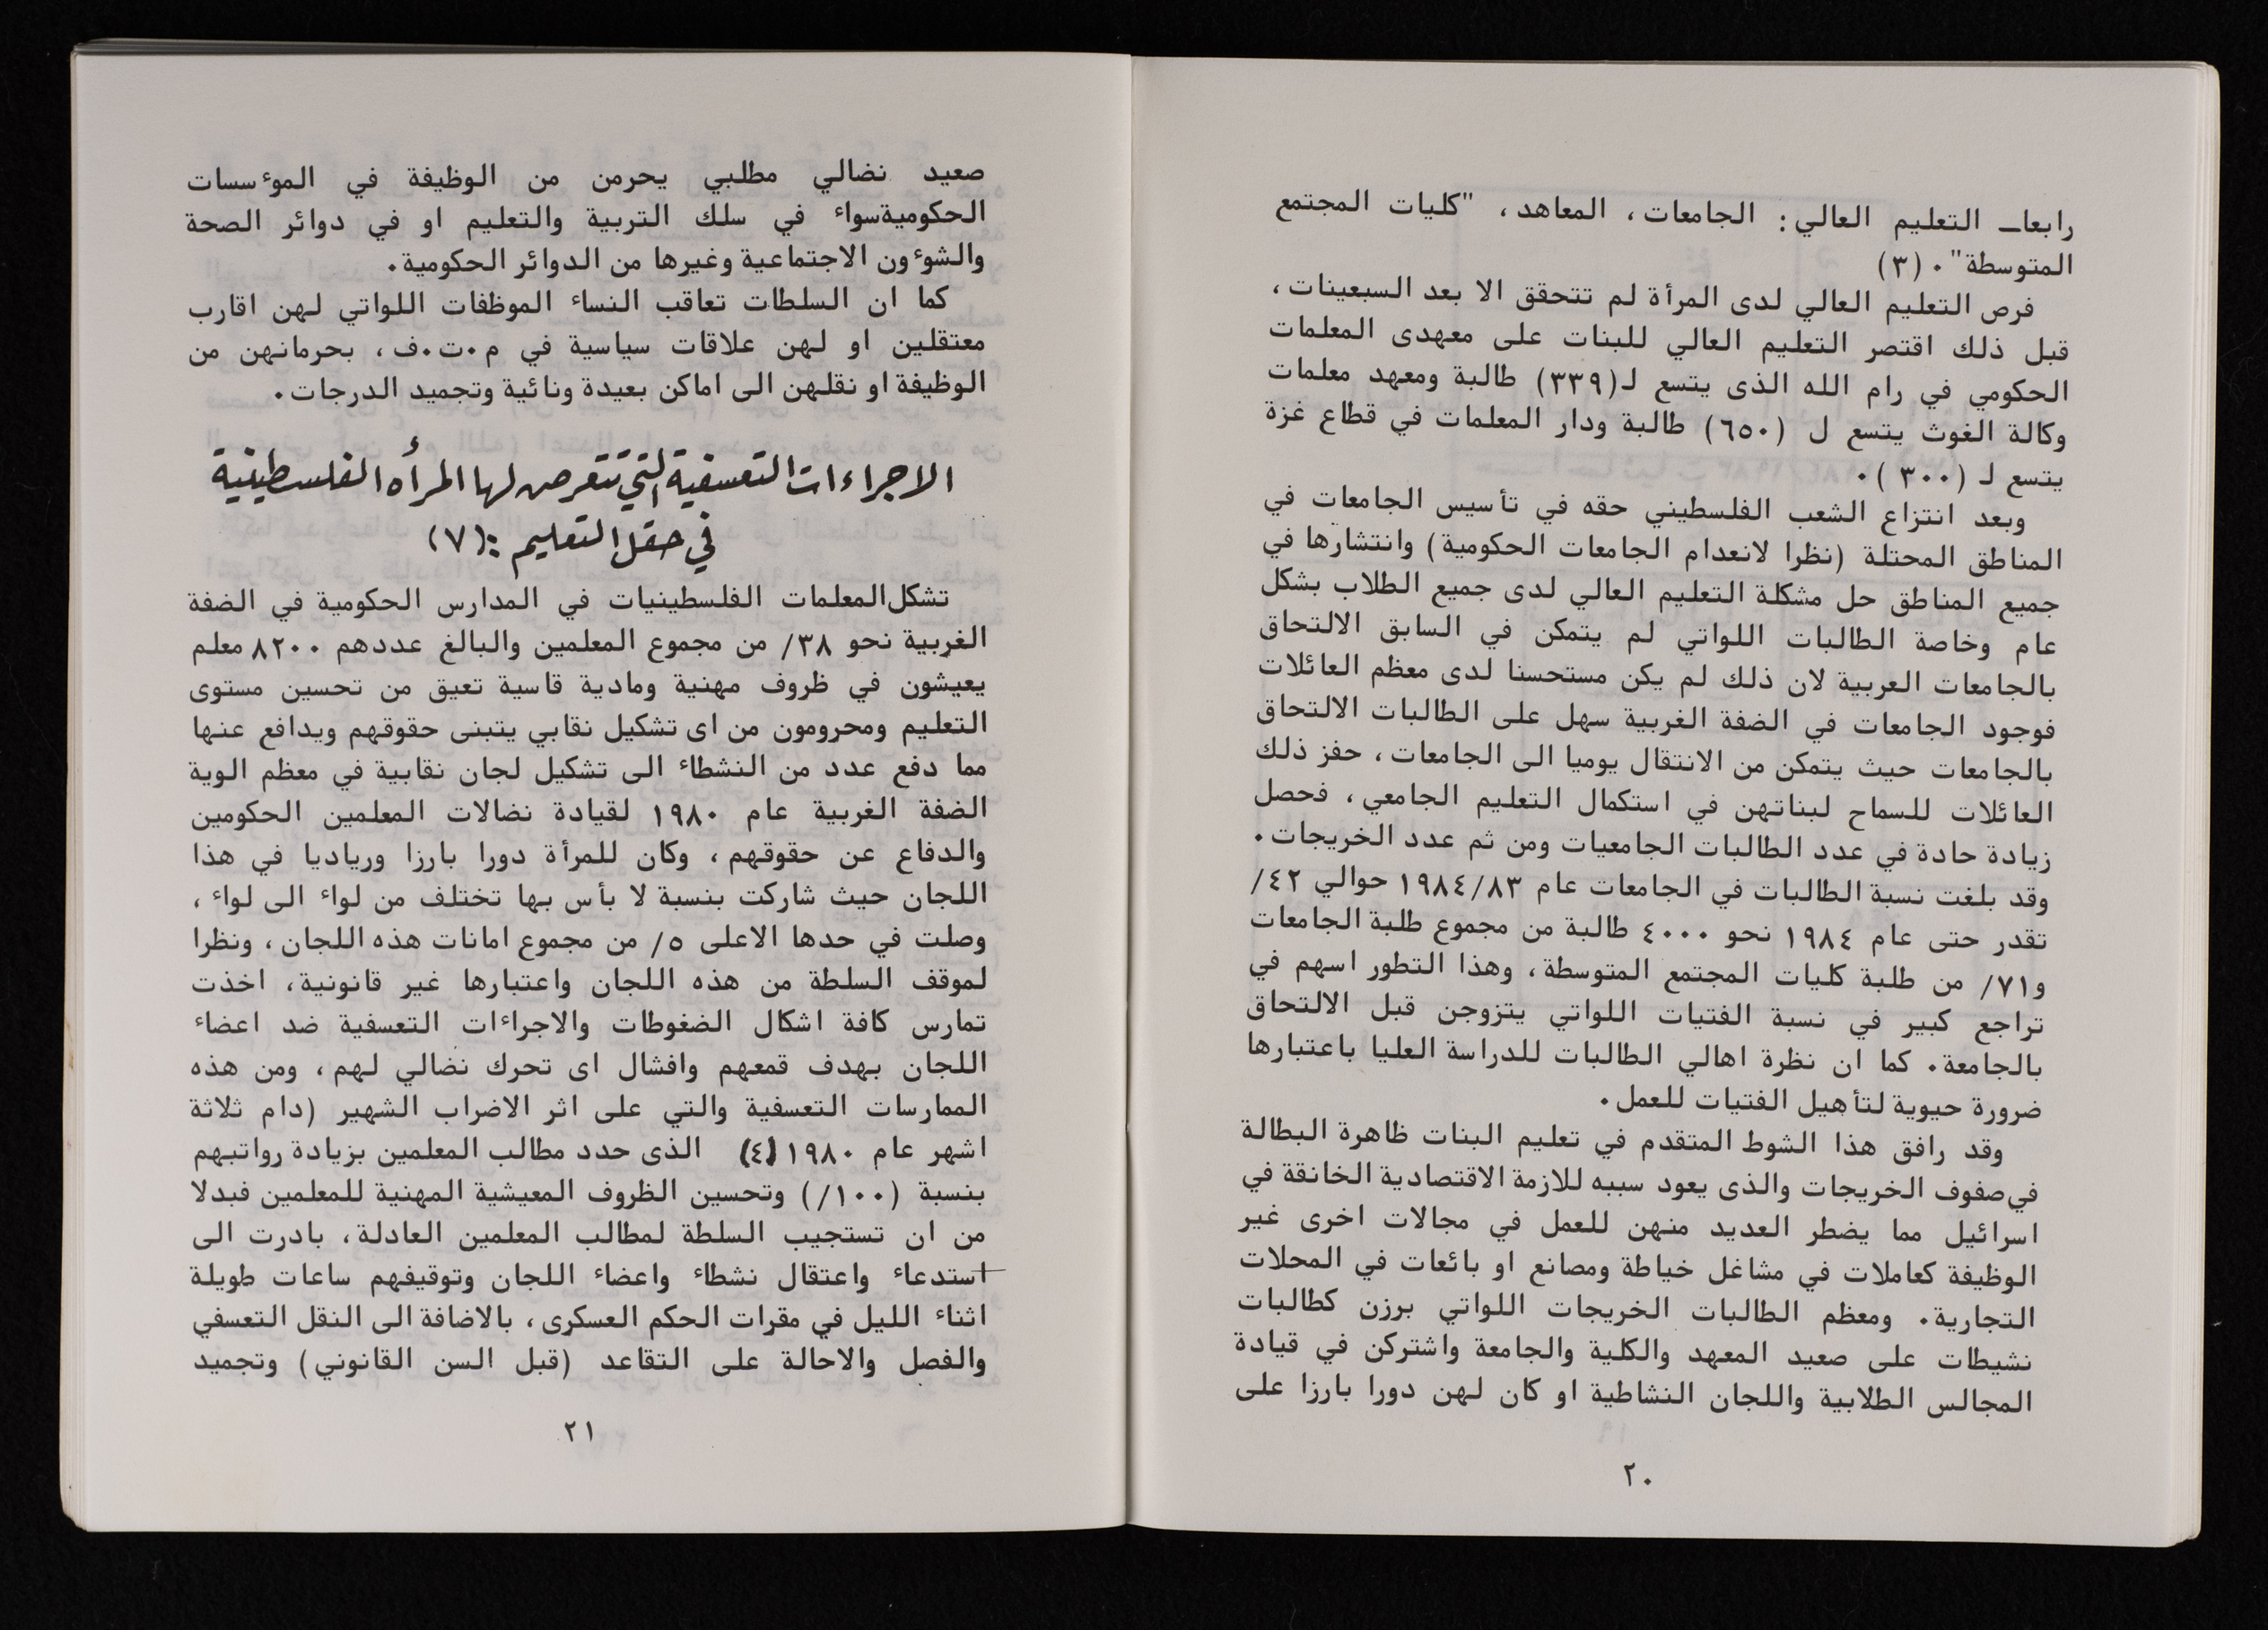 رابعاـ التعليم العالي: الجامعات، المعاهد، "كليات المجتمع
المتوسطة". (٣)
فرص التعليم العالي لدى المرأة لم تتحقق الا بعد السبعينات،
قبل ذلك اقتصر التعليم العالي للبنات على معهدى المعلمات
الحكومي في رام الله الذى يتسع لـ(٣٣٩) طالبة ومعهد معلمات
وكالة الغوث يتسع ل (٦٥٠) طالبة ودار المعلمات في قطاع غزة
يتسع لـ (٣٠٠).
وبعد انتزاع الشعب الفلسطيني حقه في تأسيس الجامعات في
المناطق المحتلة (نظرا لانعدام الجامعات الحكومية) وانتشارها في
جميع المناطق حل مشكلة التعليم العالي لدى جميع الطلاب بشكل
عام وخاصة الطالبات اللواتي لم يتمكن في السابق الالتحاق
بالجامعات العربية لان ذلك لم يكن مستحسنا لدى معظم العائلات
فوجود الجامعات في الضفة الغربية سهل على الطالبات الالتحاق
بالجامعات حيث يتمكن من الانتقال يوميا الى الجامعات، حفز ذلك
العائلات للسماح لبناتهن في استكمال التعليم الجامعي، فحصل
زيادة حادة في عدد الطالبات الجامعيات ومن ثم عدد الخريجات.
وقد بلغت نسبة الطالبات في الجامعات عام ١٩٨٤/٨٣ حوالي ٤٢/
تقدر حتى عام ١٩٨٤ نحو ٤٠٠٠ طالبة من مجموع طلبة الجامعات
و٧١/ من طلبة كليات المجتمع المتوسطة، وهذا التطور اسهم في
تراجع كبير في نسبة الفتيات اللواتي يتزوجن قبل الالتحاق
بالجامعة. كما ان نظرة اهالي الطالبات للدراسة العليا باعتبارها
ضرورة حيوية لتأهيل الفتيات للعمل.
وقد رافق هذا الشوط المتقدم في تعليم البنات ظاهرة البطالة
في صفوف الخريجات والذى يعود سببه للازمة الاقتصادية الخانقة في
اسرائيل مما يضطر العديد منهن للعمل في مجالات اخرى غير
الوظيفة كعاملات في مشاغل خياطة ومصانع او بائعات في المحلات
التجارية. ومعظم الطالبات الخريجات اللواتي برزن كطالبات
نشيطات على صعيد المعهد والكلية والجامعة واشتركن في قيادة
المجالس الطلابية واللجان النشاطية او كان لهن دورا بارزا على
٢٠
صعيد نضالي مطلبي يحرمن من الوظيفة في الموءسسات
الحكوميةسواء في سلك التربية والتعليم او في دوائر الصحة
والشوءون الاجتماعية وغيرها من الدوائر الحكومية.
كما ان السلطات تعاقب النساء الموظفات اللواتي لهن اقارب
معتقلين او لهن علاقات سياسية في م.ت.ف، بحرمانهن من
الوظيفة او نقلهن الى اماكن بعيدة ونائية وتجميد الدرجات.
الاجراءات التعسفية التي تتعرض لها المرأه الفلسطينية
في حقل التعليم :(٧)
تشكل المعلمات الفلسطينيات في المدارس الحكومية في الضفة
الغربية نحو ٣٨/ من مجموع المعلمين والبالغ عددهم ٨٢٠٠ معلم
يعيشون في ظروف مهنية ومادية قاسية تعيق من تحسين مستوى
التعليم ومحرومون من اى تشكيل نقابي يتبنى حقوقهم ويدافع عنها
مما دفع عدد من النشطاء الى تشكيل لجان نقابية في معظم الوية
الضفة الغربية عام ١٩٨٠ لقيادة نضالات المعلمين الحكومين
والدفاع عن حقوقهم، وكان للمرأة دورا بارزا ورياديا في هذا
اللجان حيث شاركت بنسبة لا بأس بها تختلف من لواء الى لواء،
وصلت في حدها الاعلى ٥/ من مجموع امانات هذه اللجان، ونظرا
لموقف السلطة من هذه اللجان واعتبارها غير قانونية، اخذت
تمارس كافة اشكال الضغوطات والاجراءات التعسفية ضد اعضاء
اللجان بهدف قمعهم وافشال اى تحرك نضالي لهم، ومن هذه
الممارسات التعسفية والتي على اثر الاضراب الشهير (دام ثلاثة
اشهر عام ١٩٨٠ (٤) الذى حدد مطالب المعلمين بزيادة رواتبهم
بنسبة (١٠٠/) وتحسين الظروف المعيشية المهنية للمعلمين فبدلا
من ان تستجيب السلطة لمطالب المعلمين العادلة، بادرت الى
استدعاء واعتقال نشطاء واعضاء اللجان وتوقيفهم ساعات طويلة
اثناء الليل في مقرات الحكم العسكرى، بالاضافة الى النقل التعسفي
والفصل والاحالة على التقاعد (قبل السن القانوني) وتجميد
٢١